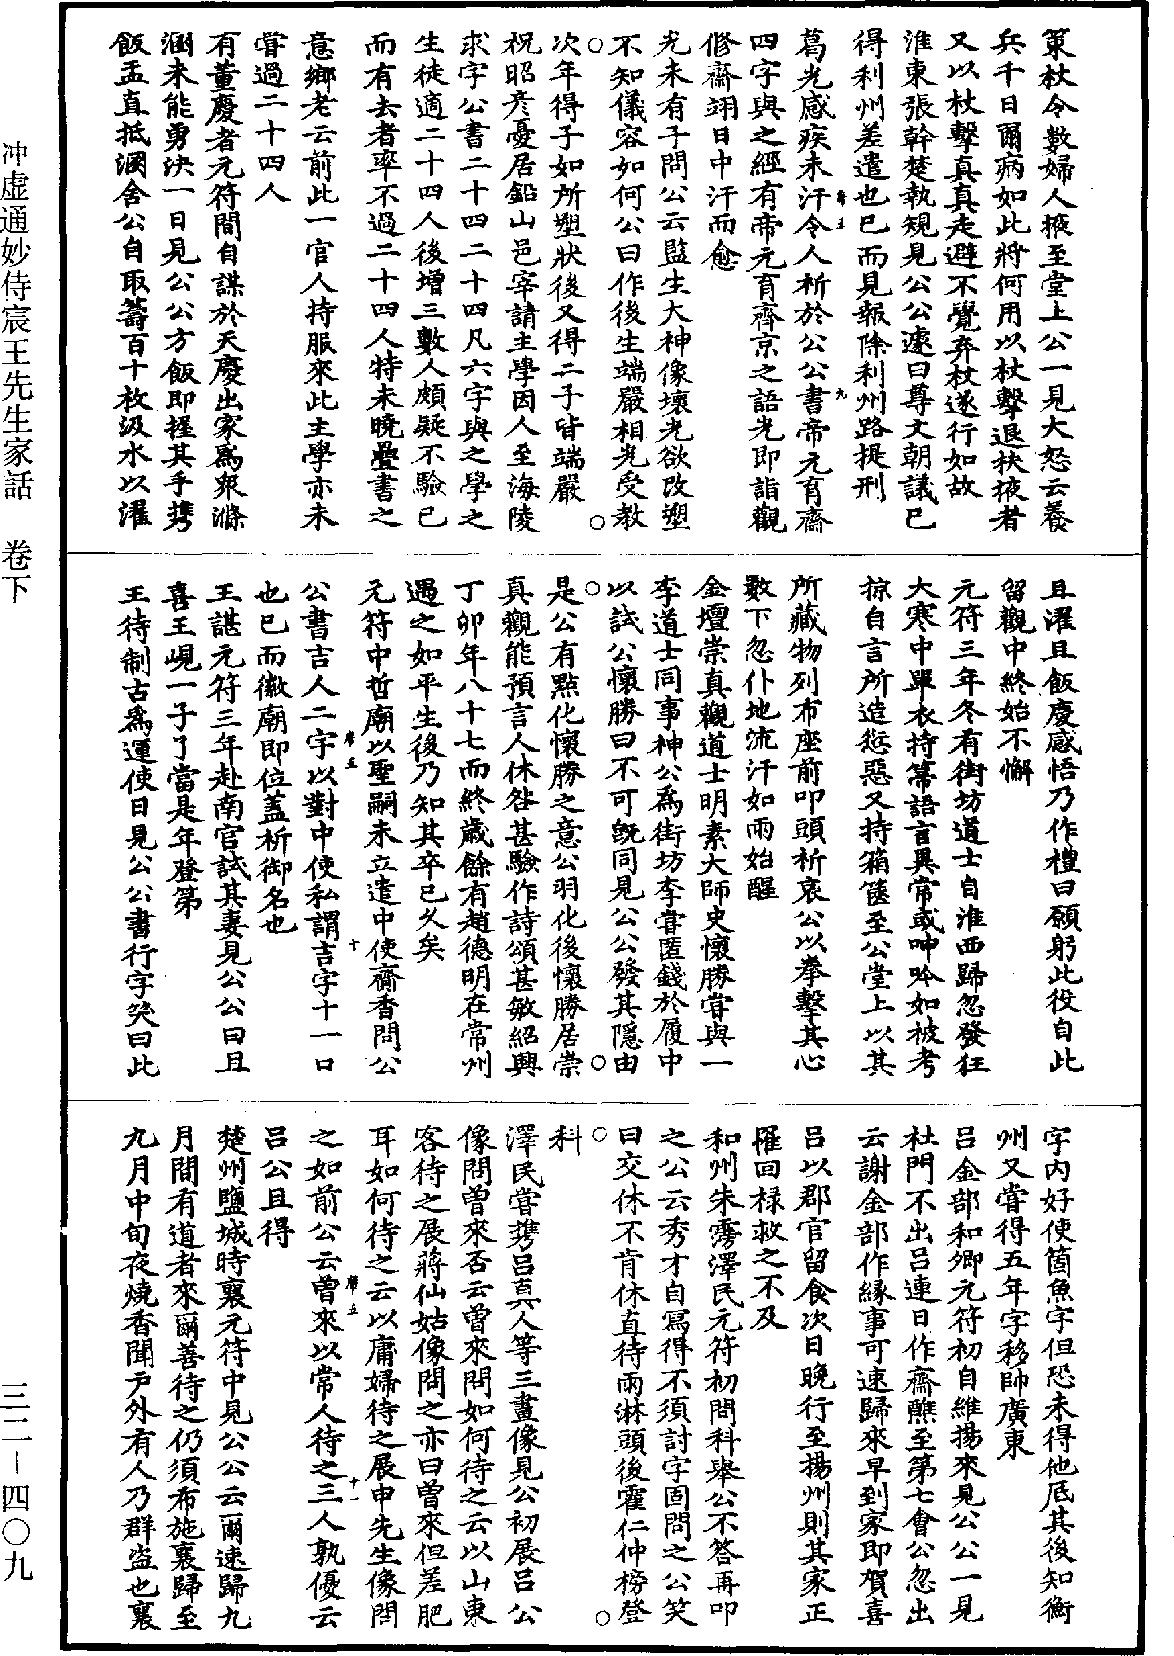 策杖令數婦人掖至堂上公一見大怒云養
兵千日爾病如此將何用以杖擊退扶掖者
又以杖擊真真走避不覺弃杖遂行如故
淮東張幹楚執規見公公遽曰尊丈朝議已
得利州差遣也已而見報除利州路提刑
葛光感疾未汗令人祈於公公書帝元育齋
四字與之經有帝元育齊京之語光即詣觀
修齋翊日中汗而愈
光未有子問公云監生大神像壞光欲改塑
不知儀容如何公曰作後生端嚴相光受教
次年得子如所塑狀後又得二子皆端嚴
祝昭彦憂居鉛山邑宰請主學因人至海陵
求字公書二十四二十四凡六字與之學之
生徒適二十四人後增三數人頗疑不驗已
而有去者率不過二十四人特未曉疊書之
意鄉老云前此一官人持服來此主學亦未
嘗過二十四人
有董慶者元符間自謀於天慶出家爲衆滌
溷未能勇決一日見公公方飯即握其手携
飯盂直抵溷舍公自取蒭百十枚汲水以濯
且濯且飯慶感悟乃作禮曰願躬此役自此
留觀中終始不懈
元符三年冬有街坊道士自淮西歸忽發狂
大寒中單衣持箒語言異常或呻吟如被考
掠自言所造愆惡又持箱篋至公堂上以其
所藏物列布座前叩頭祈哀公以拳擊其心
數下忽仆地流汗如雨始醒
金壇崇真觀道士明素大師史懷勝嘗與一
李道士同事神公爲街坊李嘗匿錢於履中
以試公懷勝曰不可旣同見公公發其隱由
是公有點化懷勝之意公羽化後懷勝居崇
真觀能預言人休咎甚驗作詩頌甚敏紹興
丁卯年八十七而終歲餘有趙德明在常州
遇之如平生後乃知其卒已久矣
元符中哲廟以聖嗣未立遣中使齎香問公
公書吉人二字以對中使私謂吉字十一口
也已而徽廟即位蓋析御名也
王諶元符三年赴南官試其妻見公公曰且
喜王峴一子了當是年登第
王待制古爲運使日見公公書行字笑曰此
字内好使箇魚字但恐未得他底其後知衡
州又嘗得五年字移帥廣東
吕金部和卿元符初自維揚來見公公一見
杜門不出吕連日作齋醮至第七會公忽出
云謝金部作緣事可速歸來早到家即賀喜
吕以郡官留食次日晚行至揚州則其家正
罹回禄救之不及
和州朱霶澤民元符初問科舉公不答再叩
之公云秀才自寫得不須討字固問之公笑
曰交休不肯休直待雨淋頭後霍仁仲榜登
科
澤民嘗携吕真人等三畫像見公初展吕公
像問曾來否云曾來問如何待之云以山東
客待之展蔣仙姑像問之亦曰曾來但差肥
耳如何待之云以庸婦待之展申先生像問
之如前公云曾來以常人待之三人孰優云
吕公且得
楚州鹽城時襄元符中見公公云爾速歸九
月間有道者來爾善待之仍須布施襄歸至
九月中旬夜燒香聞户外有人乃群盗也襄
冲虚通妙侍宸王先生家話 卷下 三二－四〇九